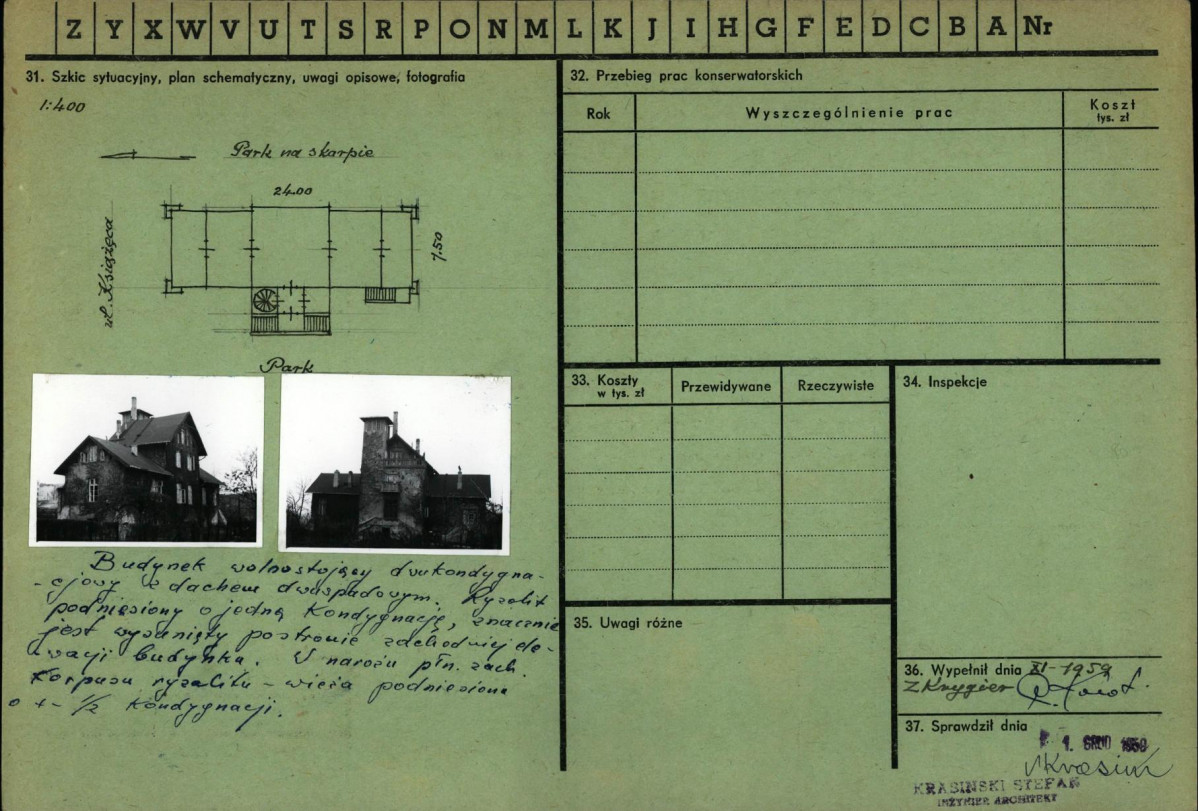 Z Y X W V U T S R P O N M L K J I H G F E D C B A Nr
31. Szkic sytuacyjny, plan schematyczny, uwagi opisowe, fotografia
1:400
Park na skarpie
24.00
7.50
ul. Książęca
Park
Budynek wolnostojący dwukondygna-
-cjowy z dachem dwuspadowym. Ryzalit
podniesiony o jedną kondygnację, znacznie
jest wysunięty po stronie zachodniej ele-
wacji budynku. W narożu płn. zach.
korpusu ryzalitu - wieża podniesiona
o +- 1/2 kondygnacji.
32. Przebieg prac konserwatorskich
Rok
Wyszczególnienie prac
Koszt
tys. zł
33. Koszty
w tys. zł
Przewidywane
Rzeczywiste
34. Inspekcje
35. Uwagi różne
36. Wypełnił dnia XI-1959
Z Krygier
37. Sprawdził dnia
1. GRUD 1959
KRASIŃSKI STEFAN
INŻYNIER ARCHITEKT